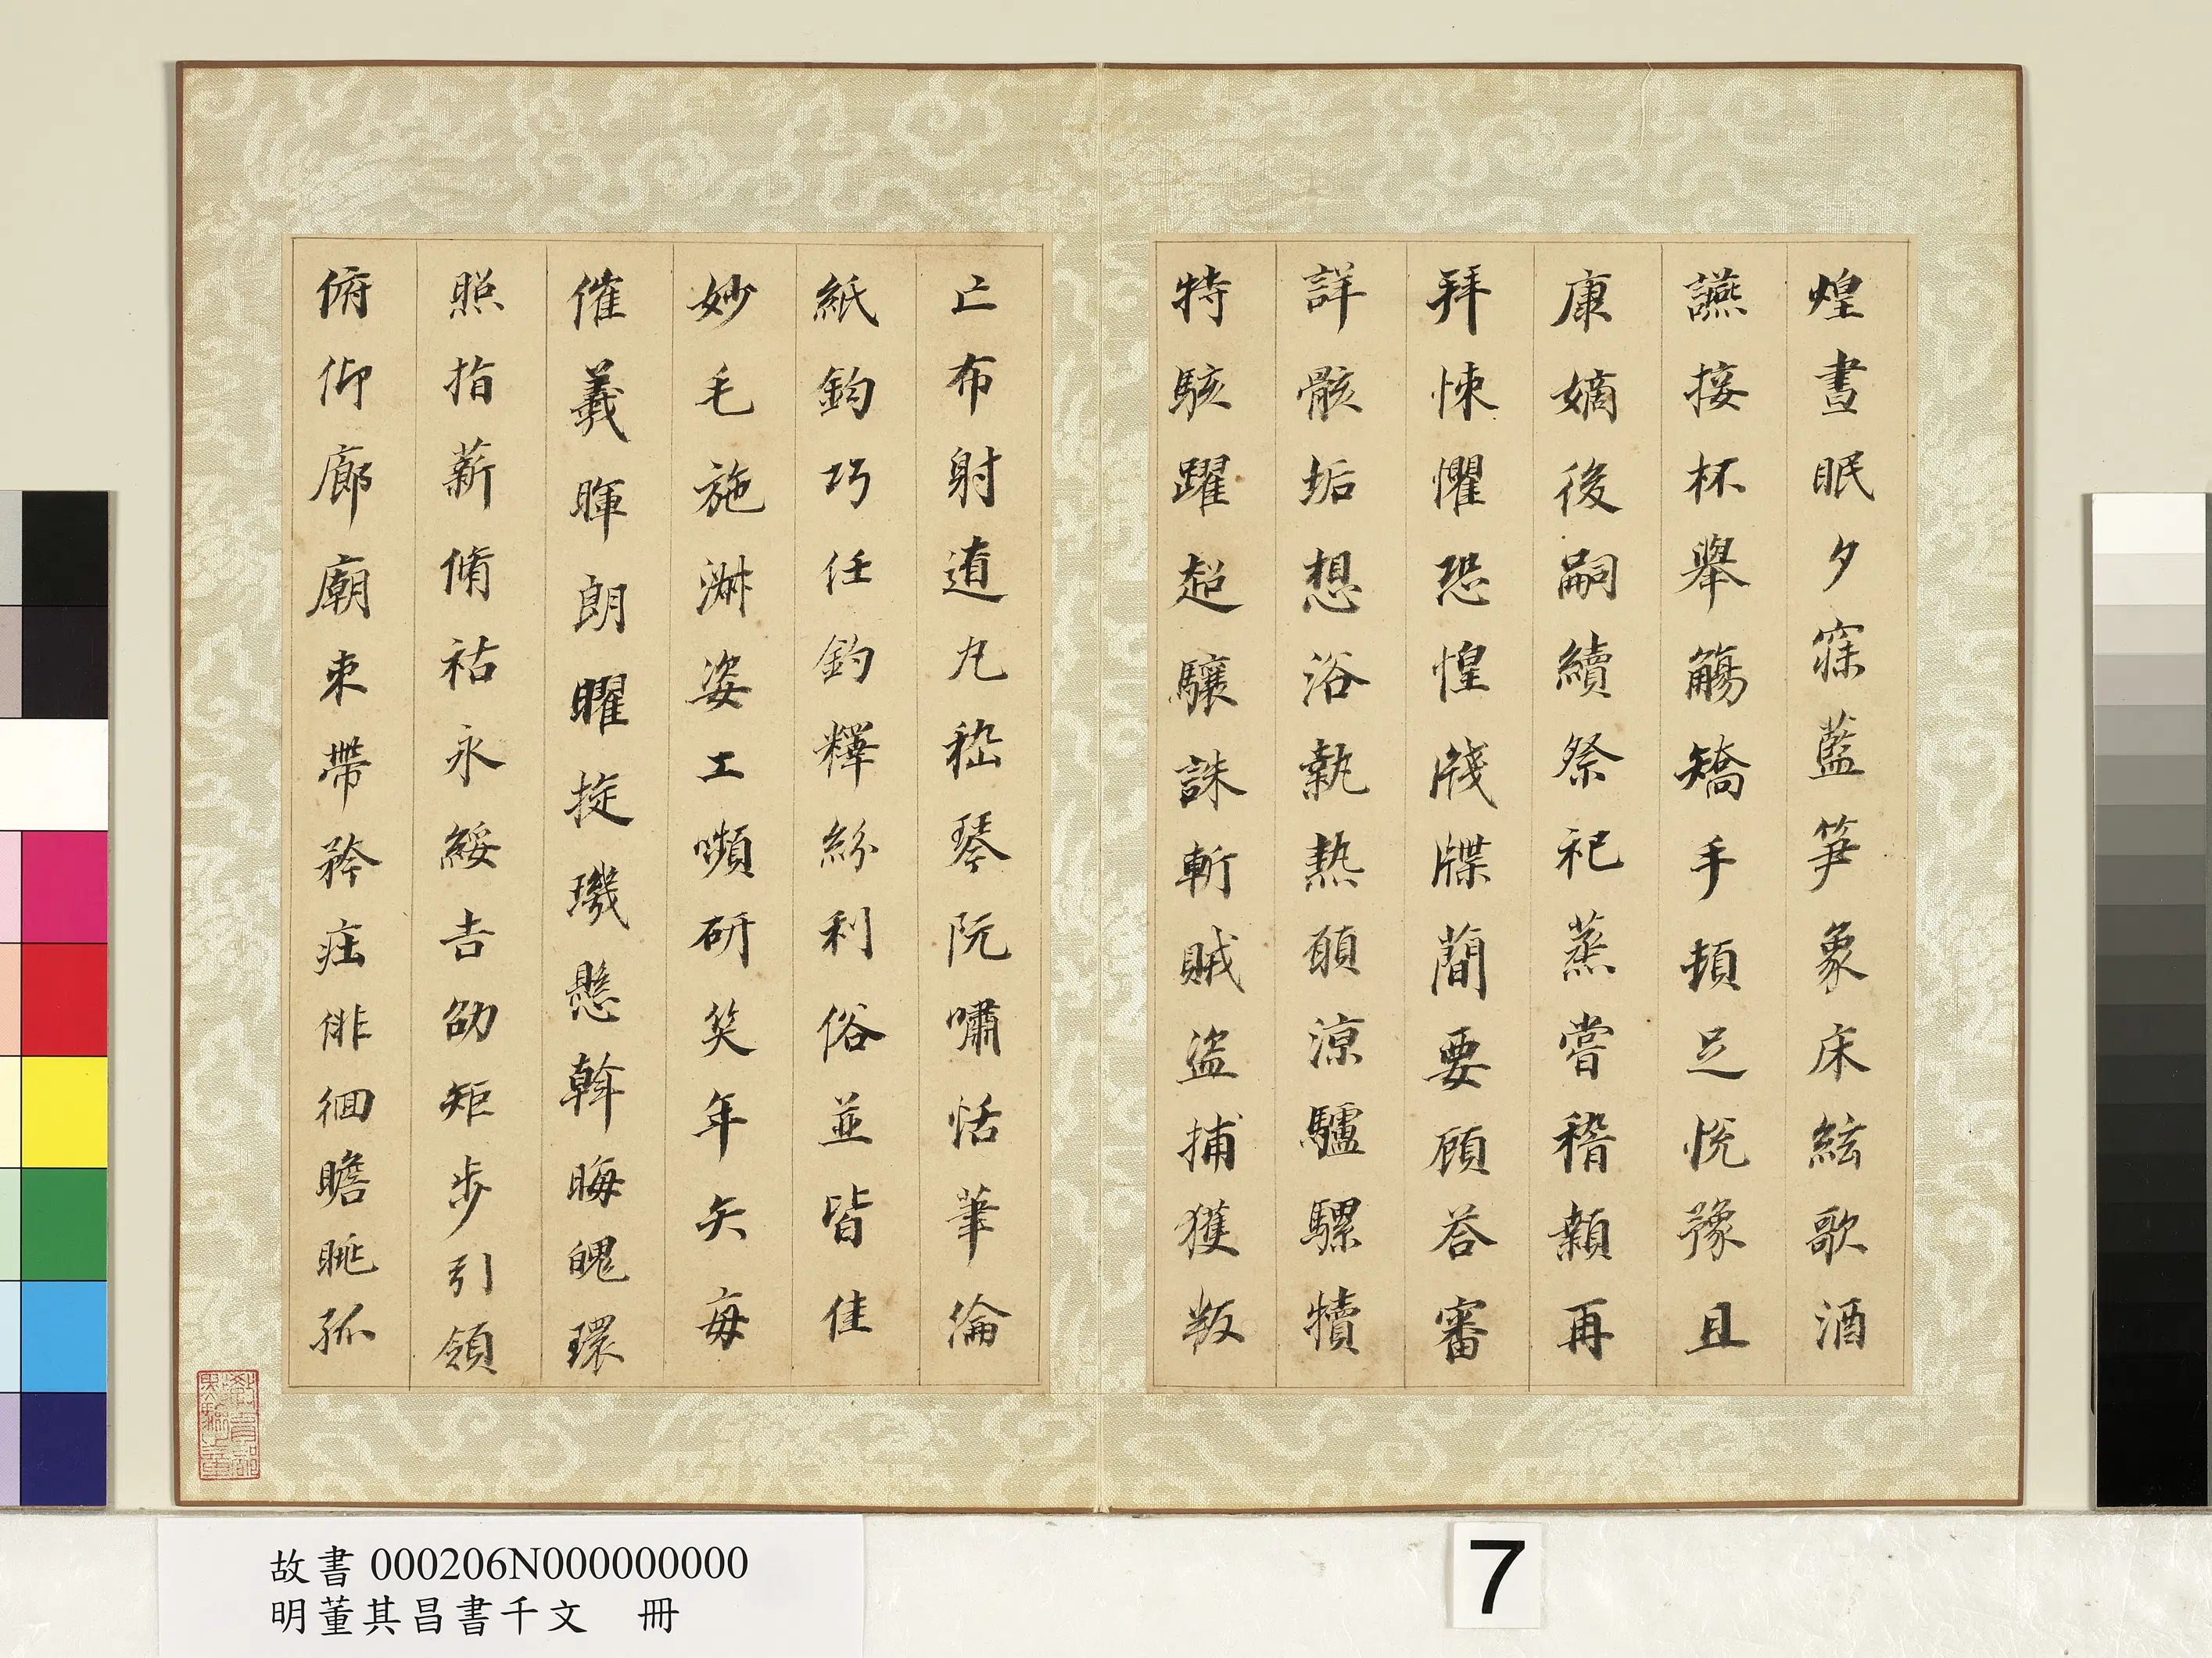 煌晝眠夕寐藍笋象床絃歌酒
讌接杯舉觴矯手頓足悅豫且
康嫡後嗣續祭祀蒸嘗稽顙再
拜悚懼恐惶牋牒簡要顧荅審
詳骸垢想浴執熱願涼驢騾犢
特駭躍超驤誅斬賊盜捕獲叛
亡布射遼丸嵇琴阮嘯恬筆倫
紙鈞巧任釣釋紛利俗並皆佳
妙毛施淑姿工嚬研笑年矢每
催羲暉朗曜璇璣懸斡晦魄環
照指薪脩祜永綏吉劭矩步引領
俯仰廊廟束帶矜莊徘徊瞻眺孤
故書 000206N000000000
明董其昌書千文 冊
7